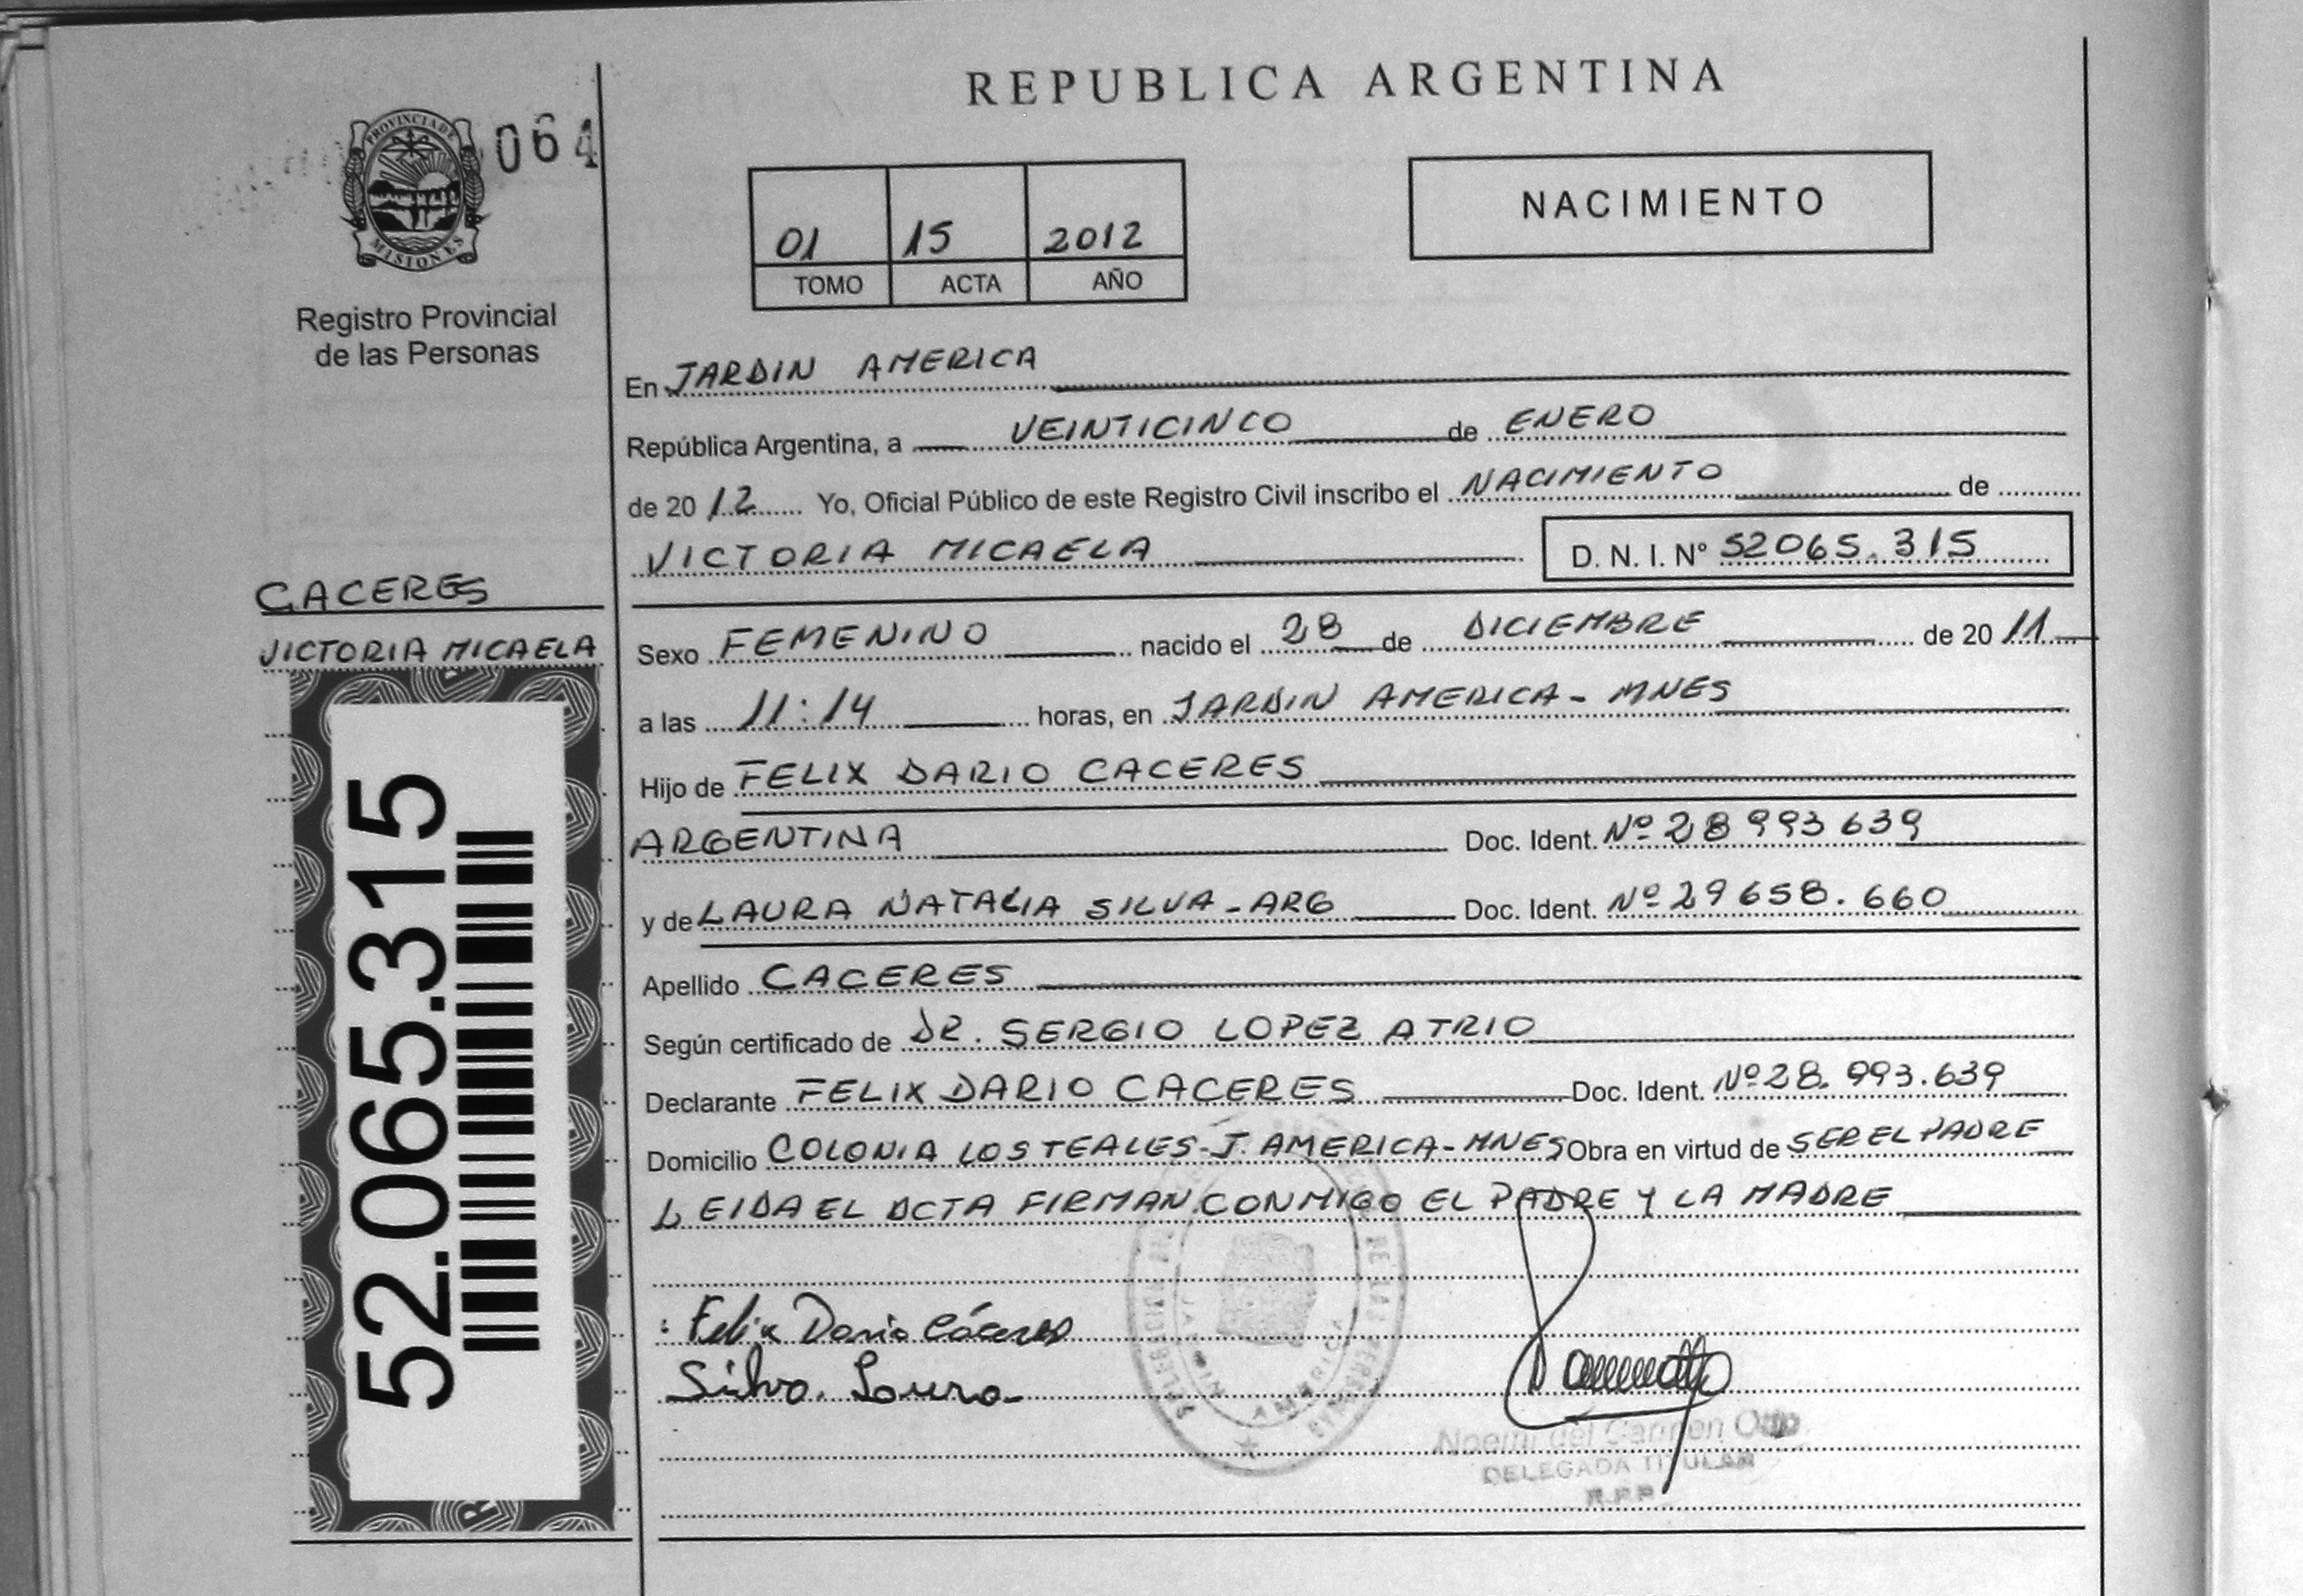 REPUBLICA ARGENTINA
PROVINCIA DE
MISIONES
064
Registro Provincial
de las Personas
01 15 2012
TOMO ACTA AÑO
NACIMIENTO
En JARDIN AMERICA
República Argentina, a VEINTICINCO de ENERO
de 2012 Yo, Oficial Público de este Registro Civil inscribo el NACIMIENTO de
VICTORIA MICAELA D. N. I. Nº 52065.315
CACERES
VICTORIA MICAELA
52.065.315
Sexo FEMENINO nacido el 28 de DICIEMBRE de 2011
a las 11:14 horas, en JARDIN AMERICA - MNES
Hijo de FELIX DARIO CACERES
ARGENTINA Doc. Ident. Nº 28 993 639
y de LAURA NATALIA SILVA - ARG Doc. Ident. Nº 29 658.660
Apellido CACERES
Según certificado de DR. SERGIO LOPEZ ATRIO
Declarante FELIX DARIO CACERES Doc. Ident. Nº 28.993.639
Domicilio COLONIA LOS TEALES - J. AMERICA - MNES Obra en virtud de SER EL PADRE
LEIDA EL ACTA FIRMAN CONMIGO EL PADRE Y LA MADRE
Felix Dario Cáceres
Silva. Laura
JARDIN AMERICA
DE LAS PERSONAS
Noemi del Carmen Otto
DELEGADA TITULAR
R.P.P.